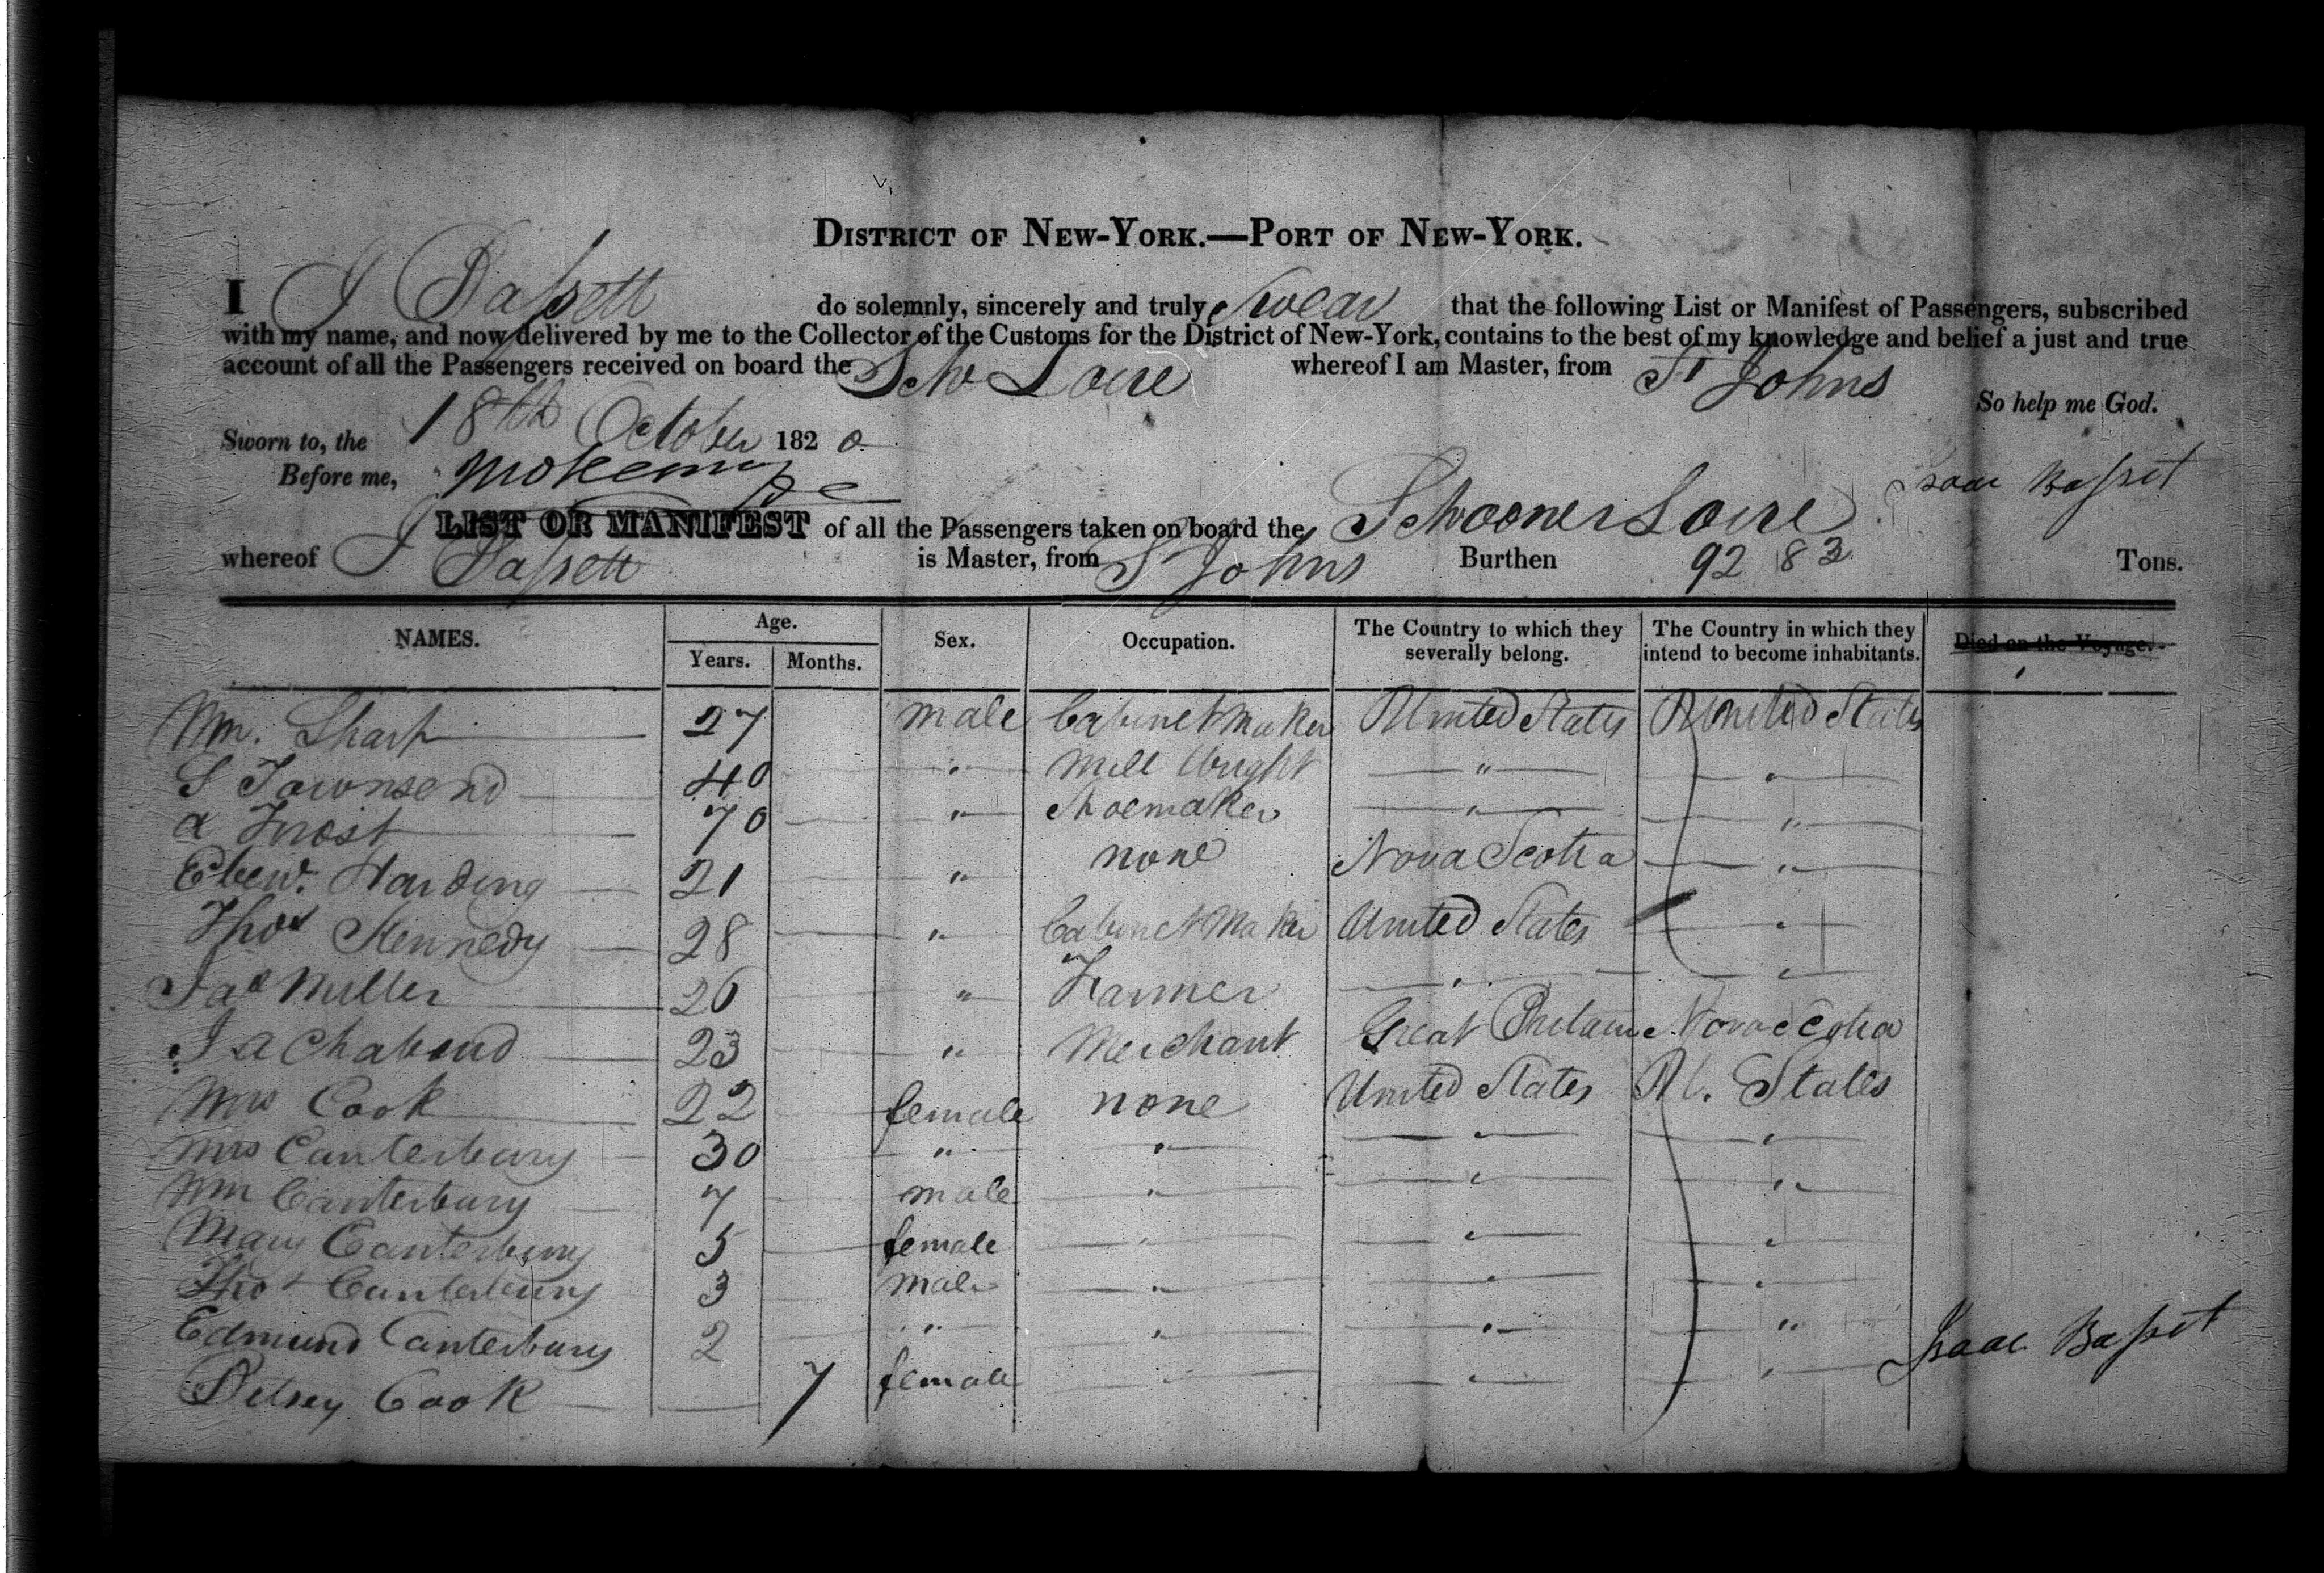 DISTRICT OF NEW-YORK.—PORT OF NEW-YORK.
I J Bassett do solemnly, sincerely and truly swear that the following List or Manifest of Passengers, subscribed
with my name, and now delivered by me to the Collector of the Customs for the District of New-York, contains to the best of my knowledge and belief a just and true
account of all the Passengers received on board the Schr Loire whereof I am Master, from St Johns
So help me God.
Sworn to, the 18th October 1820
Before me,
Isaac Basset
LIST OR MANIFEST of all the Passengers taken on board the Schooner Loire
whereof J Bassett is Master, from St Johns Burthen 92 83 Tons.
NAMES. Age. Years. Months. Sex. Occupation. The Country to which they severally belong. The Country in which they intend to become inhabitants. Died on the Voyage.
Wm. Sharp 27 male Cabinet Maker United States United States
S Townsend 40 " Mill Wright " "
A Frost 70 " Shoemaker " "
Ebenr. Harding 21 " none Nova Scotia "
Thos Kennedy 28 " Cabinet Maker United States "
Jas Miller 26 " Farmer " "
J A Chaboud 23 " Merchant Great Britain Nova Scotia
Mrs Cook 22 female none United States U. States
Mrs Canterbury 30 " " " "
Wm Canterbury 7 male " " "
Mary Canterbury 5 female " " "
Thos Canterbury 3 male " " "
Edmund Canterbury 2 " " " "
Betsey Cook 7 female " " "
Isaac Basset